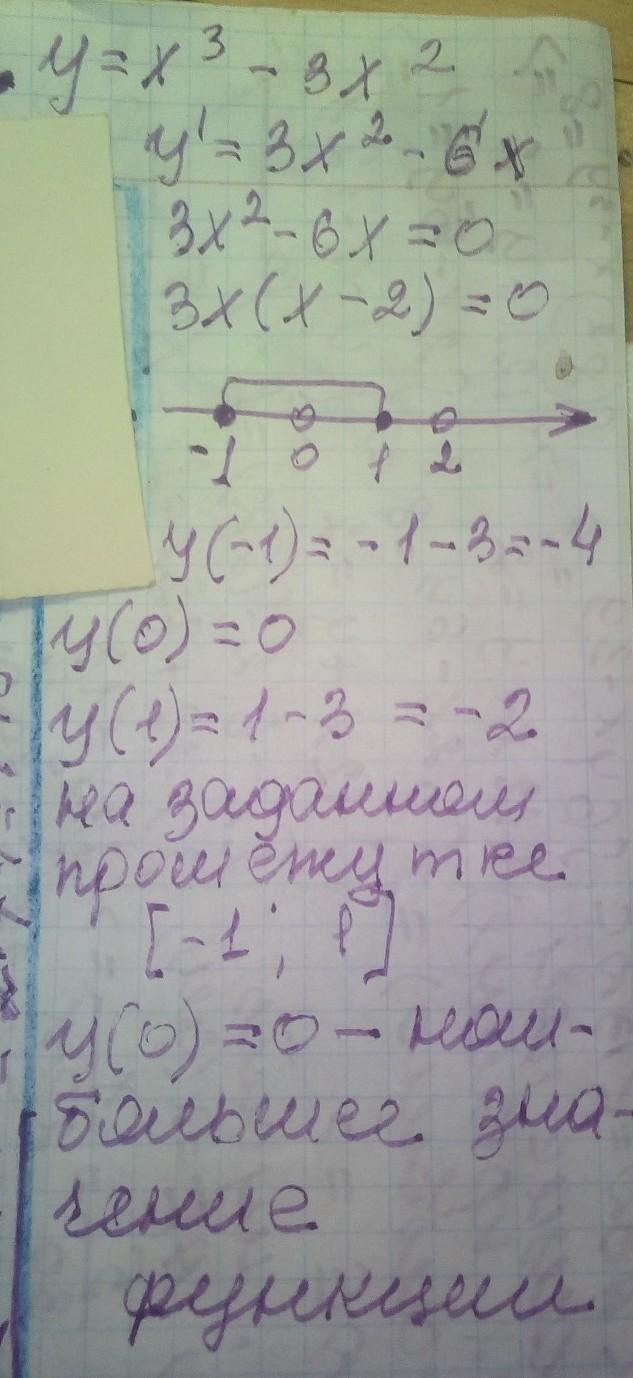 y = x³ - 3x²
y' = 3x² - 6x
3x² - 6x = 0
3x(x - 2) = 0
-1 0 1 2
y(-1) = -1 - 3 = -4
y(0) = 0
y(1) = 1 - 3 = -2
на заданном
промежутке
[-1; 1]
y(0) = 0 - наи-
большее зна-
чение
функции